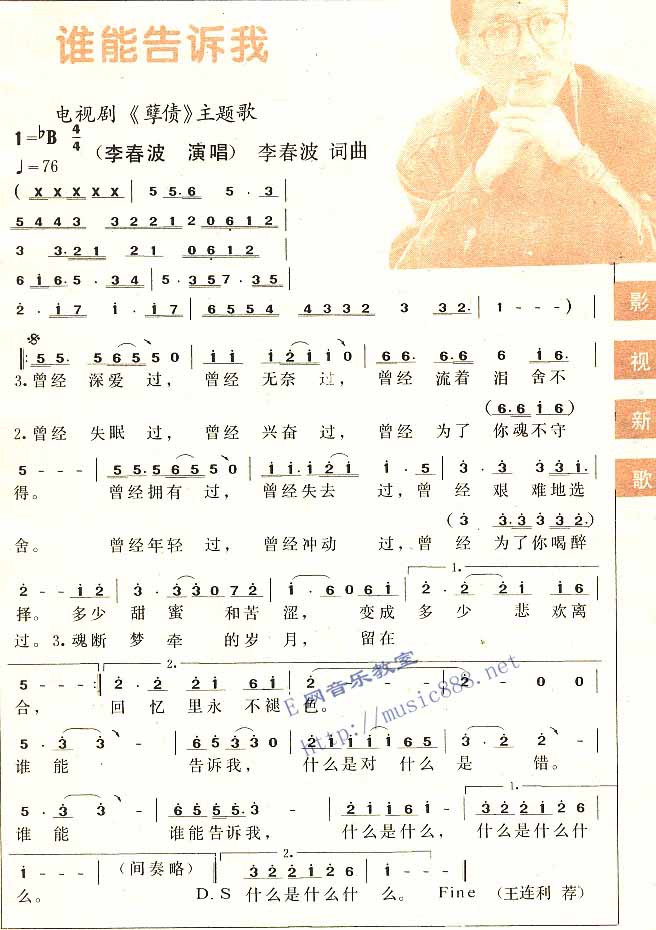 谁能告诉我
电视剧《孽债》主题歌
1=♭B 4/4
♩=76 (李春波 演唱) 李春波 词曲
( X X X X X | 5 5·6 5 · 3 |
5 4 4 3 3 2 2 1 2 0 6 1 2
3 3·2 1 2 1 0 6 1 2
6 1 6 5 · 3 4 | 5 · 3 5 7 · 3 5 |
2 · 1 7 1 · 1 7 | 6 5 5 4 4 3 3 2 3 3 2· | 1 - - - )
影视新歌
5 5· 5 6 5 5 0 | 1 1 1 2 1 1 0 | 6 6· 6 6· 6 1 6· |
3.曾经 深爱 过, 曾经 无奈 过, 曾经 流着 泪 舍不
(6·6 1 6)
2.曾经 失眠 过, 曾经 兴奋 过, 曾经 为了 你魂不守
5 - - - | 5 5·5 5 6 5 5 0 | 1 1·1 1 2 1 1 · 5 | 3 · 3 3 3 3 1· |
得。 曾经拥有 过, 曾经失去 过,曾 经 艰 难地选
(3 3·3 3 3 2·)
舍。 曾经年轻 过, 曾经冲动 过,曾 经 为了你喝醉
2 - - 1 2 | 3 · 3 3 3 0 7 2 | 1 · 1 6 0 6 1 | 2 · 2 2 1 1 6 |
1.
择。 多少 甜 蜜 和苦 涩, 变成 多 少 悲 欢离
过。3.魂断 梦 牵 的岁 月, 留在
2.
5 - - - :| 2 · 2 2 1 6 1 | 2 - - - | 2 - 0 0
合, 回 忆 里永 不褪 色。
E网音乐教室
http://music888.net
5 · 3 3 - | 6 5 5 3 3 0 | 2 1 1 1 1 6 5 | 3 · 2 2 -
谁 能 告诉我, 什么是对 什么 是 错。
1.
5 · 3 3 - | 6 5 5 5·3 - | 2 1 1 6 1 - | 3 2 2 1 2 6
谁 能 谁能告诉我, 什么是什么, 什么是什么什
2.
1 - - - | (间奏略) | 3 2 2 1 2 6 | 1 - - - |
么。 D.S 什么是什么什 么。 Fine (王连利 荐)